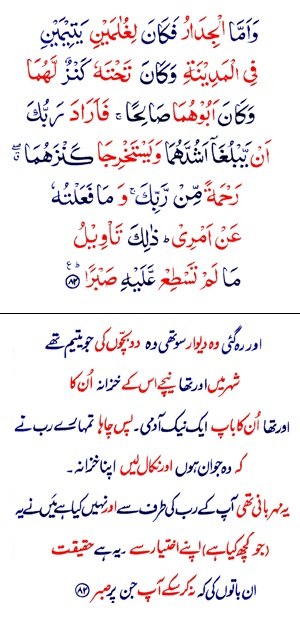 وَاَمَّا الْجِدَارُ فَكَانَ لِغُلٰمَيْنِ يَتِيْمَيْنِ
فِى الْمَدِيْنَةِ وَكَانَ تَحْتَهٗ كَنْزٌ لَّهُمَا
وَكَانَ اَبُوْهُمَا صَالِحًا ۚ فَاَرَادَ رَبُّكَ
اَنْ يَّبْلُغَاۤ اَشُدَّهُمَا وَيَسْتَخْرِجَا كَنْزَهُمَا ۖۗ
رَحْمَةً مِّنْ رَّبِّكَ ۚ وَ مَا فَعَلْتُهٗ
عَنْ اَمْرِىْ ؕ ذٰلِكَ تَاْوِيْلُ
مَا لَمْ تَسْطِعْ عَّلَيْهِ صَبْرًا ؕ ﴿۸۲﴾
اور رہ گئی وہ دیوار سو تھی وہ دو بچّوں کی جو یتیم تھے
شہر میں اور تھا نیچے اس کے خزانہ اُن کا
اور تھا اُن کا باپ ایک نیک آدمی۔ پس چاہا تمہارے رب نے
کہ وہ جوان ہوں اور نکال لیں اپنا خزانہ۔
یہ مہربانی تھی آپ کے رب کی طرف سے اور نہیں کیا ہے میں نے یہ
(جو کچھ کیا ہے) اپنے اختیار سے۔ یہ ہے حقیقت
ان باتوں کی کہ نہ کر سکے آپ جن پر صبر ﴿۸۲﴾